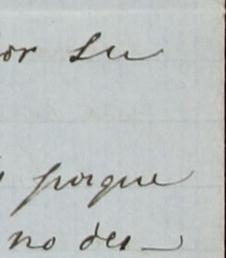 or su
porque
no des-